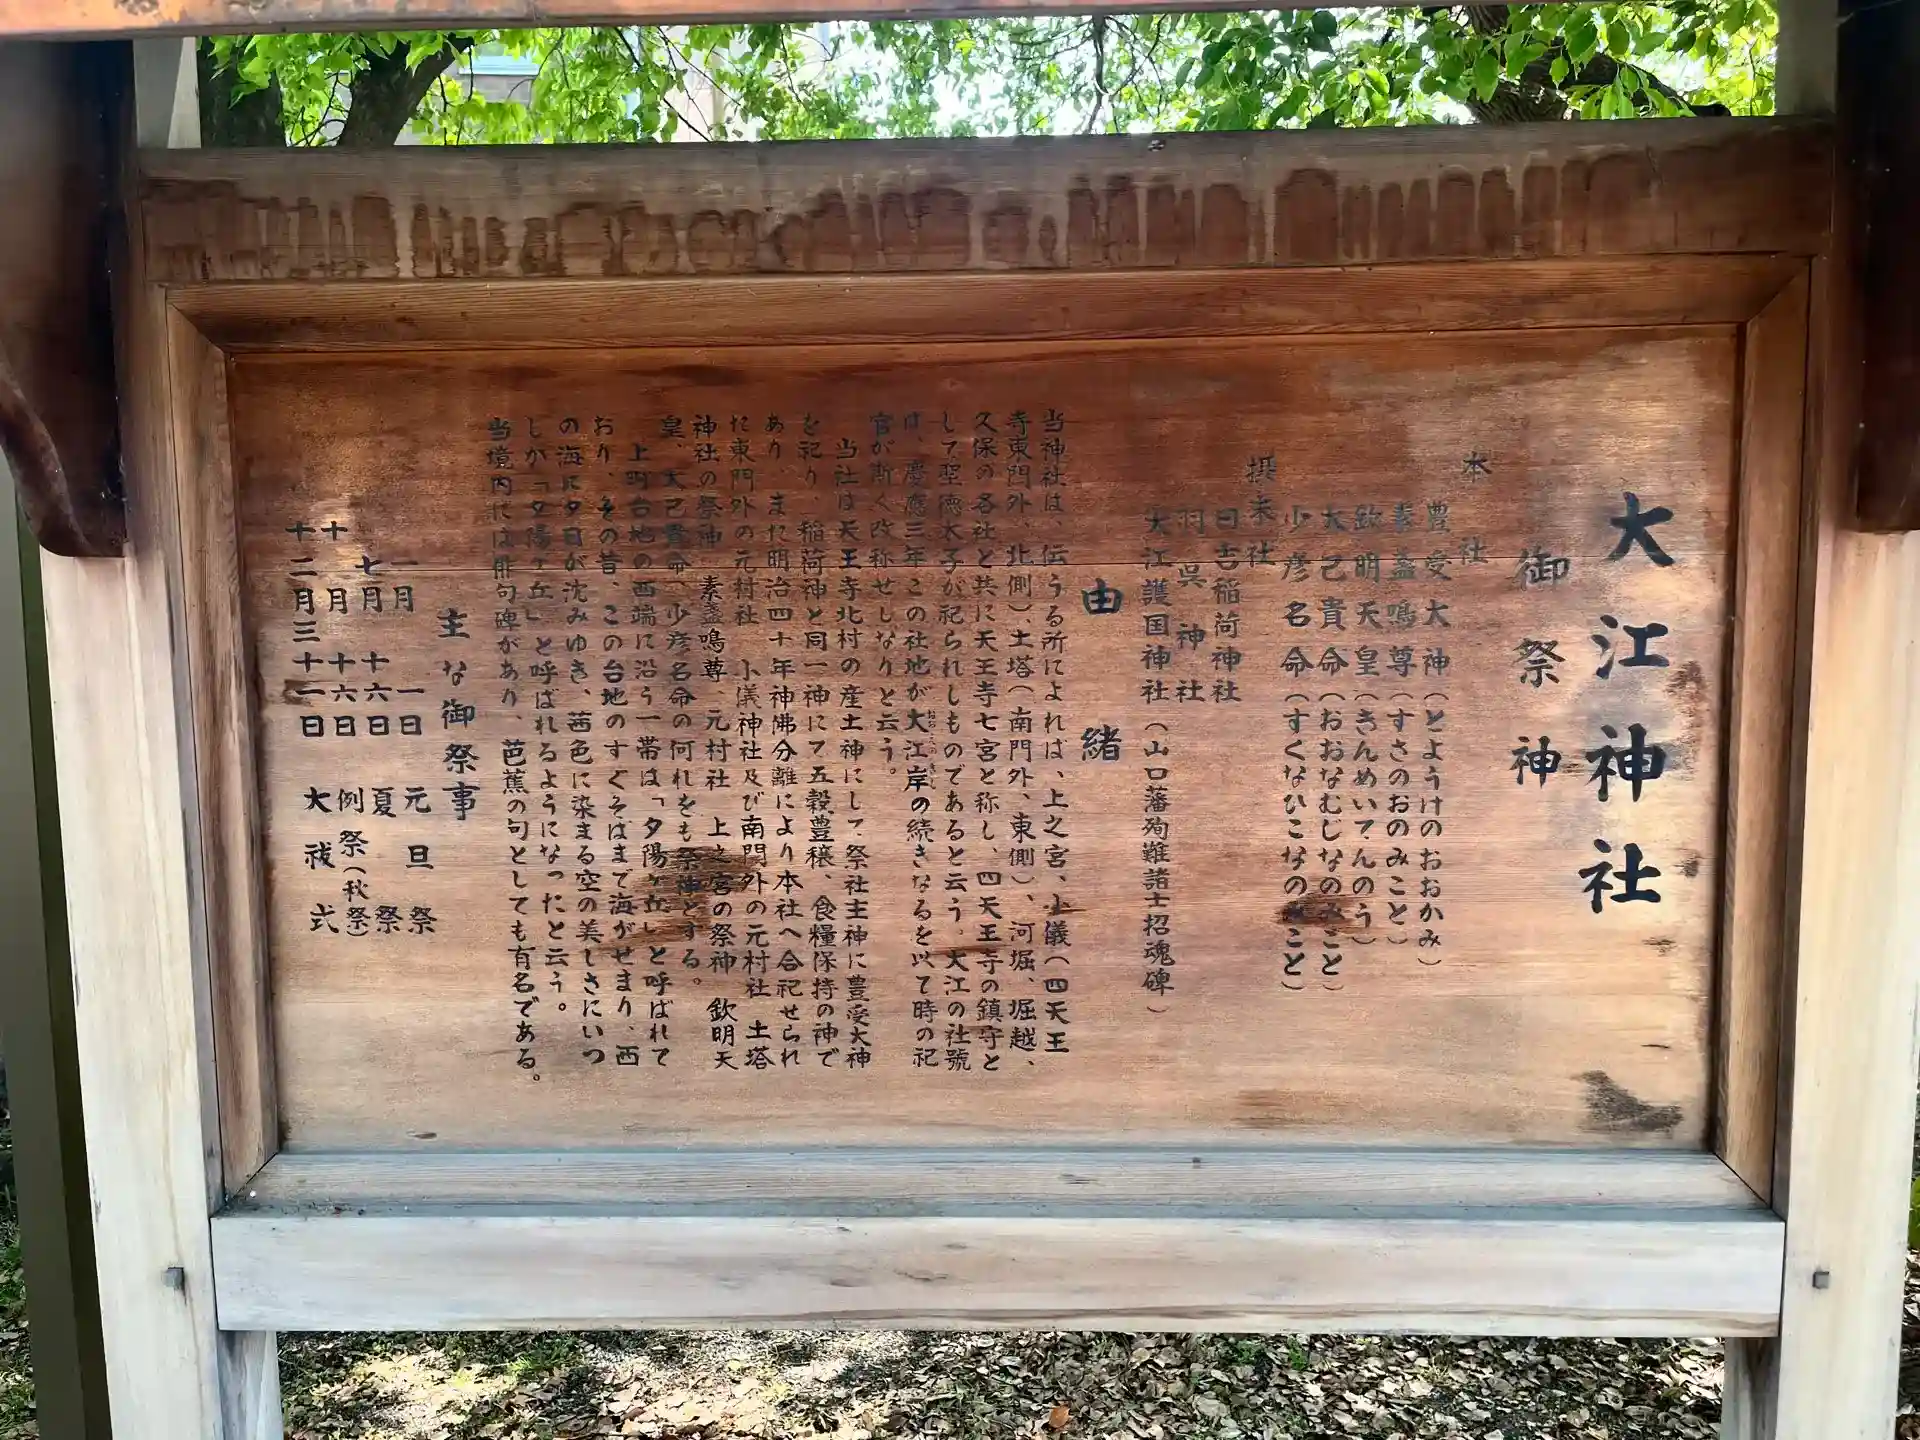 大江神社
御祭神
本社
豊受大神(とようけのおおかみ)
素盞嗚尊(すさのおのみこと)
欽明天皇(きんめいてんのう)
大己貴命(おおなむじなのみこと)
少彦名命(すくなひこなのみこと)
摂末社
日吉稲荷神社
羽呉神社
大江護国神社(山口藩殉難諸士招魂碑)
由緒
当神社は、伝うる所によれば、上之宮、小儀(四天王
寺東門外、北側)、土塔(南門外、東側)、河堀、堀越、
久保の各社と共に天王寺七宮と称し、四天王寺の鎮守と
して聖徳太子が祀られしものであると云う。大江の社號
は、慶應三年この社地が大江岸の続きなるを以て時の祀
おおえのきし
官が斯く改称せしなりと云う。
当社は天王寺北村の産土神にして祭社主神に豊受大神
を祀り、稲荷神と同一神にて五穀豊穣、食糧保持の神で
あり、また明治四十年神佛分離により本社へ合祀せられ
た東門外の元村社 小儀神社及び南門外の元村社 土塔
神社の祭神 素盞嗚尊、元村社 上之宮の祭神 欽明天
皇、大己貴命、少彦名命の何れをも祭神とする。
上町台地の西端に沿う一帯は「夕陽ヶ丘」と呼ばれて
おり、その昔、この台地のすぐそばまで海がせまり、西
の海に夕日が沈みゆき、茜色に染まる空の美しさにいつ
しか「夕陽ヶ丘」と呼ばれるようになったと云う。
当境内には俳句碑があり、芭蕉の句としても有名である。
主な御祭事
一月 一日 元旦祭
七月 十六日 夏祭
十月 十六日 例祭(秋祭)
十二月三十一日 大祓式